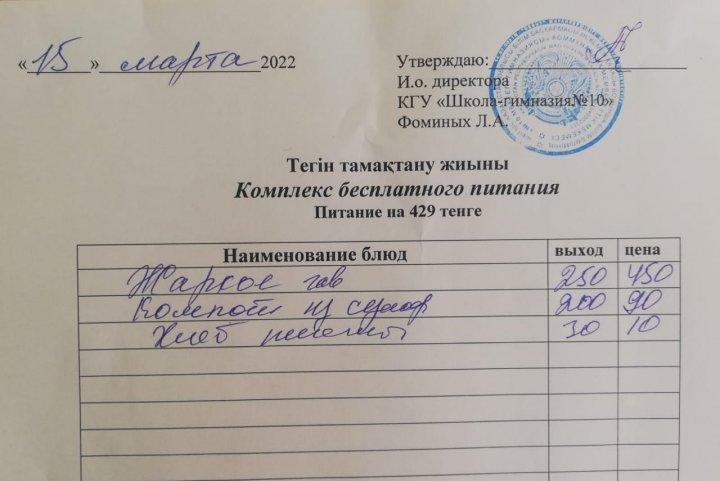 «15» марта 2022
Утверждаю:
И.о. директора
КГУ «Школа-гимназия№10»
Фоминых Л.А.
Тегін тамақтану жиыны
Комплекс бесплатного питания
Питание на 429 тенге
Наименование блюд выход цена
Жаркое гов 250 450
Компот из сухоф 200 90
Хлеб 30 10